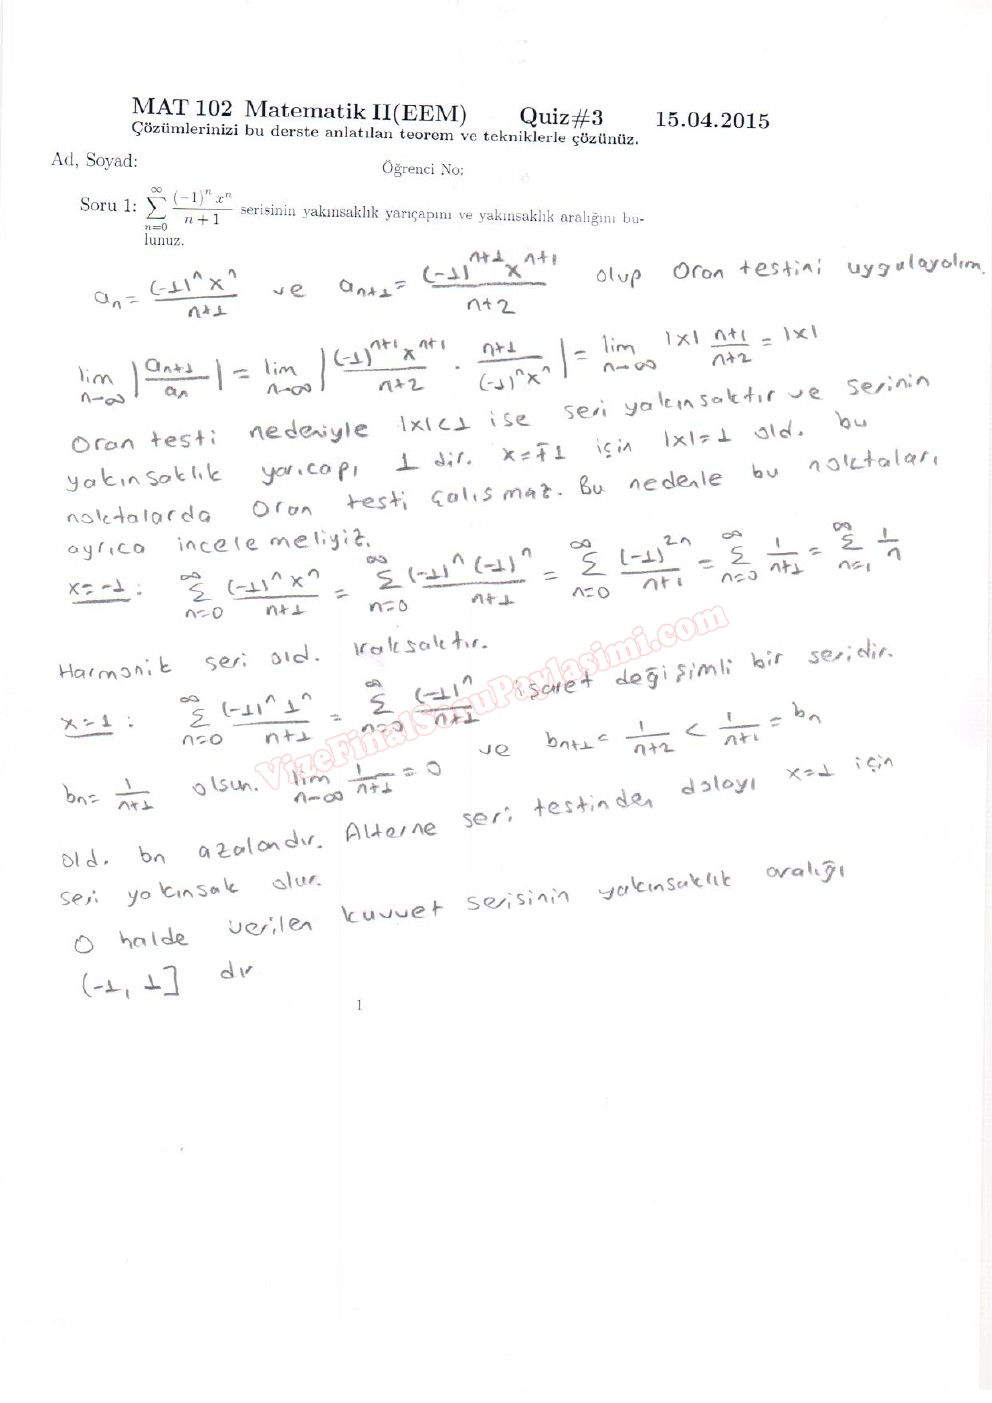 MAT 102 Matematik II(EEM) Quiz#3 15.04.2015
Çözümlerinizi bu derste anlatılan teorem ve tekniklerle çözünüz.
Ad, Soyad: Öğrenci No:
Soru 1: ∑_{n=0}^{∞} (-1)^n x^n / (n+1) serisinin yakınsaklık yarıçapını ve yakınsaklık aralığını bu-
lunuz.
a_n = (-1)^n x^n / (n+1) ve a_{n+1} = (-1)^{n+1} x^{n+1} / (n+2) olup Oran testini uygulayalım.
lim_{n→∞} |a_{n+1} / a_n| = lim_{n→∞} |(-1)^{n+1} x^{n+1} / (n+2) · (n+1) / ((-1)^n x^n)| = lim_{n→∞} |x| (n+1)/(n+2) = |x|
Oran testi nedeniyle |x|<1 ise seri yakınsaktır ve serinin
yakınsaklık yarıcapı 1 dir. x=∓1 için |x|=1 old. bu
noktalarda Oran testi çalısmaz. Bu nedenle bu noktaları
ayrıca incelemeliyiz.
x=-1 : ∑_{n=0}^{∞} (-1)^n x^n / (n+1) = ∑_{n=0}^{∞} (-1)^n (-1)^n / (n+1) = ∑_{n=0}^{∞} (-1)^{2n} / (n+1) = ∑_{n=0}^{∞} 1/(n+1) = ∑_{n=1}^{∞} 1/n
Harmonik seri old. ıraksaktır.
x=1 : ∑_{n=0}^{∞} (-1)^n 1^n / (n+1) = ∑_{n=0}^{∞} (-1)^n / (n+1) isaret değişimli bir seridir.
b_n = 1/(n+1) olsun. lim_{n→∞} 1/(n+1) = 0 ve b_{n+1} = 1/(n+2) < 1/(n+1) = b_n
old. bn azalandır. Alterne seri testinden dolayı x=1 için
seri yakınsak olur.
O halde verilen kuvvet serisinin yakınsaklık aralığı
(-1, 1] dır
1
VizeFinalSoruPaylasimi.com